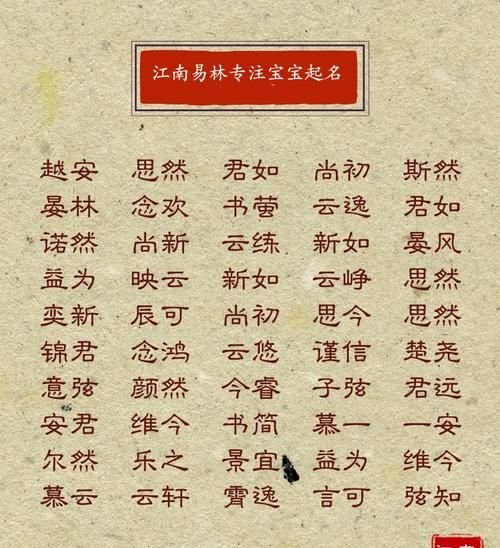 江南易林专注宝宝起名
越安 思然 君如 尚初 斯然
晏林 念欢 书萤 云逸 君如
诺然 尚新 云练 新如 晏风
益为 映云 新如 云峥 思然
奕新 辰可 尚初 思今 思然
锦君 念鸿 云悠 谨信 楚尧
意弦 颜然 今睿 子弦 君远
安君 维今 书简 慕一 一安
尔然 乐之 景宜 益为 维今
慕云 云轩 霄逸 言可 弦知